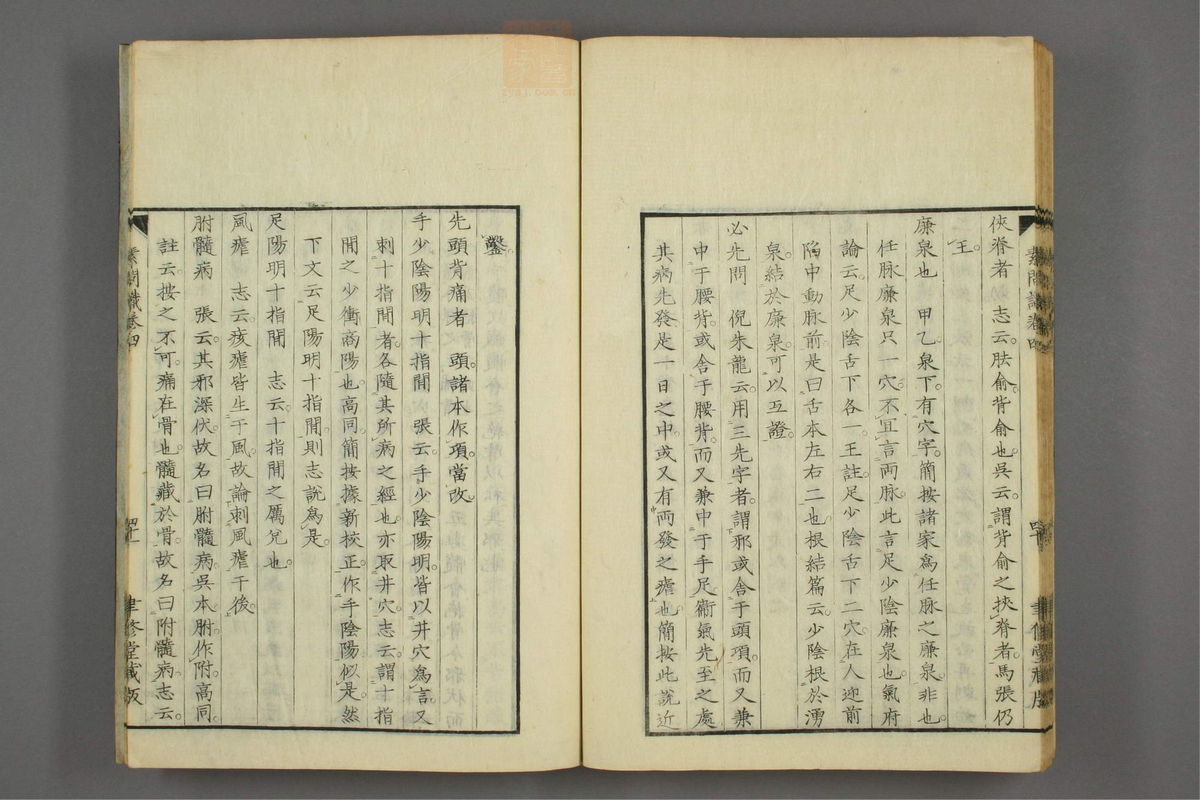 俠脊者 志云。胠俞。背俞也。吳云。謂背俞之挾脊者。馬張仍
王。
廉泉也 甲乙泉下。有穴字。簡按諸家爲任脉之廉泉。非也。
任脉廉泉只一穴。不宜言兩脉。此言足少陰廉泉也。氣府
論云。足少陰舌下各一。王註。足少陰舌下二穴。在人迎前
陷中動脉前。是曰舌本。左右二也。根結篇云。少陰根於湧
泉。結於廉泉。可以互證。
必先問 倪朱龍云。用三先字者。謂邪或舍于頭項。而又兼
中于腰背。或舍于腰背。而又兼中于手足。衞氣先至之處
其病先發。是一日之中。或又有兩發之瘧也。簡按此說近
鑿。
先頭背痛者 頭諸本作項。當改。
手少陰陽明十指間 張云。手少陰陽明。皆以井穴爲言。又
刺十指間者。各隨其所病之經也。亦取井穴。志云。謂十指
間之少衝商陽也。高同。簡按據新校正。作手陰陽似是。然
下文云足陽明十指間。則志說爲是。
足陽明十指間 志云。十指間之厲兌也。
風瘧 志云。痎瘧皆生于風。故論刺風瘧于後。
胕髓病 張云。其邪深伏。故名曰胕髓病。吳本。胕作附。高同。
註云。按之不可。痛在骨也。髓藏於骨。故名曰附髓病。志云。
素問識卷四
聿修堂藏版
素問識卷四
聿修堂藏版